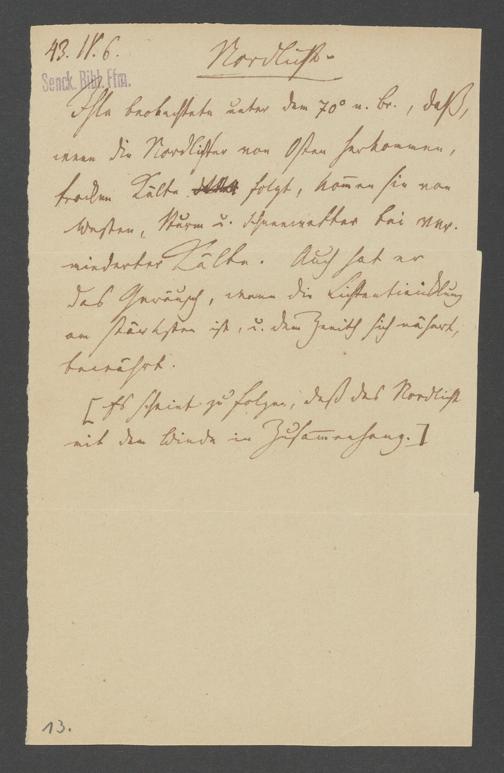 43. IV. 6.
Nordlicht.
Senck. Bibl. Ffm.
Ihle beobachtete unter dem 70° n. Br., daß,
wenn die Nordlichter von Osten herkommen,
trockene Kälte folgt, kommen sie von
Westen, Sturm u. Schneewetter bei ver-
minderter Kälte. Auch hat er
das Geräusch, wenn die Lichtentwicklung
am stärksten ist, u. dem Zenith sich nähert,
bewährt.
[Es scheint zu folgen, daß das Nordlicht
mit dem Winde in Zusammenhang.]
13.